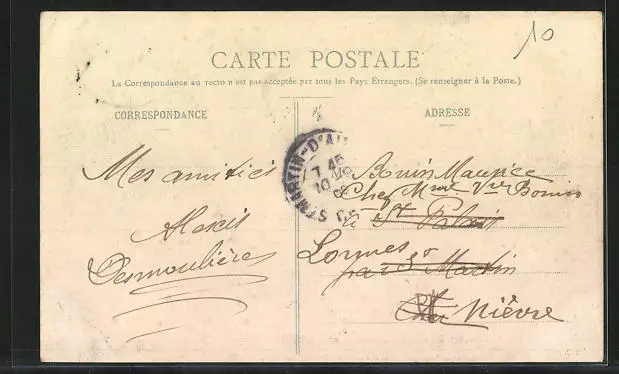 10
CARTE POSTALE
La Correspondance au recto n'est pas acceptée par tous les Pays Étrangers. (Se renseigner à la Poste.)
CORRESPONDANCE
ADRESSE
Mes amitiés
Alexis
Desmoulière
St MARTIN-D'AU
7 45
10
Bouin Maurice
Chez Mme Vve Bouin
à St Palais
Lormes
par St Martin
Nièvre